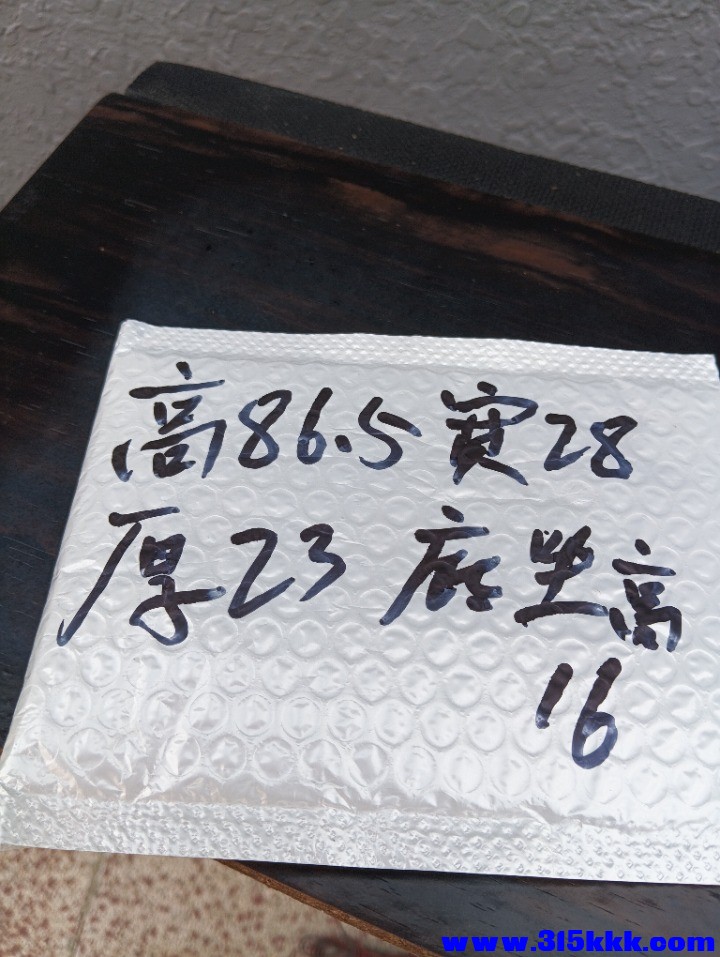 高86.5 寬28
厚23 底坐高
16
www.315kkk.com